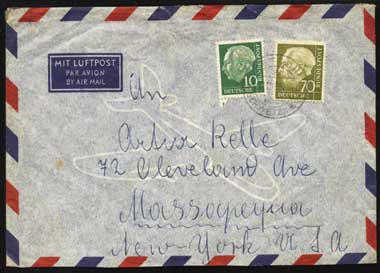 MIT LUFTPOST
PAR AVION
BY AIR MAIL
10
DEUTSCHE
BUNDESPOST
70
DEUTSCHE
BUNDESPOST
An
Artur Kelle
72 Cleveland Ave
Massapequa
New-York U.S.A